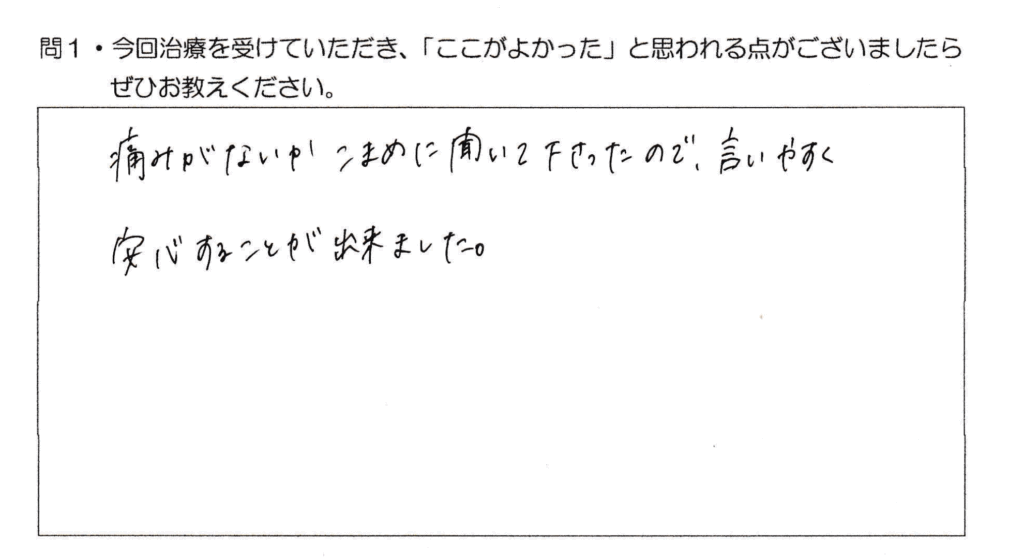 問1・今回治療を受けていただき、「ここがよかった」と思われる点がございましたら
ぜひお教えください。
痛みがないか こまめに聞いて下さったので、言いやすく
安心することが出来ました。